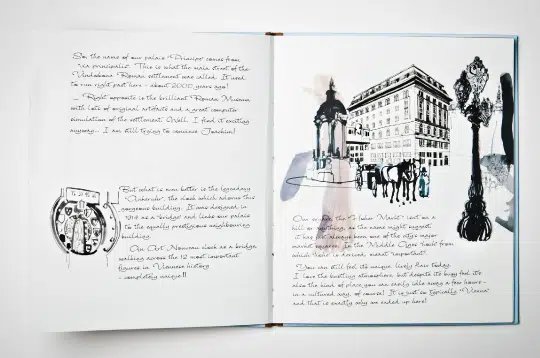 So, the name of our palace "Principe" comes from
"via principalis". This is what the main street of the
Vindobona Roman settlement was called. It used
to run right past here - about 2000 years ago!
... Right opposite is the brilliant Roman Museum
with lots of original artefacts and a great computer
simulation of the settlement. Well, I find it exciting
anyway... I am still trying to convince Joachim!
But what is even better is the legendary
"Ankeruhr", the clock which adorns this
gorgeous building. It was designed in
1914 as a 'bridge' and links our palace
to the equally prestigious neighbouring
building.
An Art Nouveau clock as a bridge,
walking across the 12 most important
figures in Vienna's history
- completely unique!!
Our square, the "Hoher Markt" isn't on a
hill or anything, as the name might suggest,
it has always been one of the city's major
market squares. In the Middle Ages 'hoch' from
which 'hoher' is derived, meant "important".
You can still feel its unique, lively flair today.
I love the bustling atmosphere, but despite its busy feel, it's
also the kind of place you can easily idle away a few hours -
in a cultured way, of course! It is just so typically "Vienna"
and that is exactly why we ended up here!